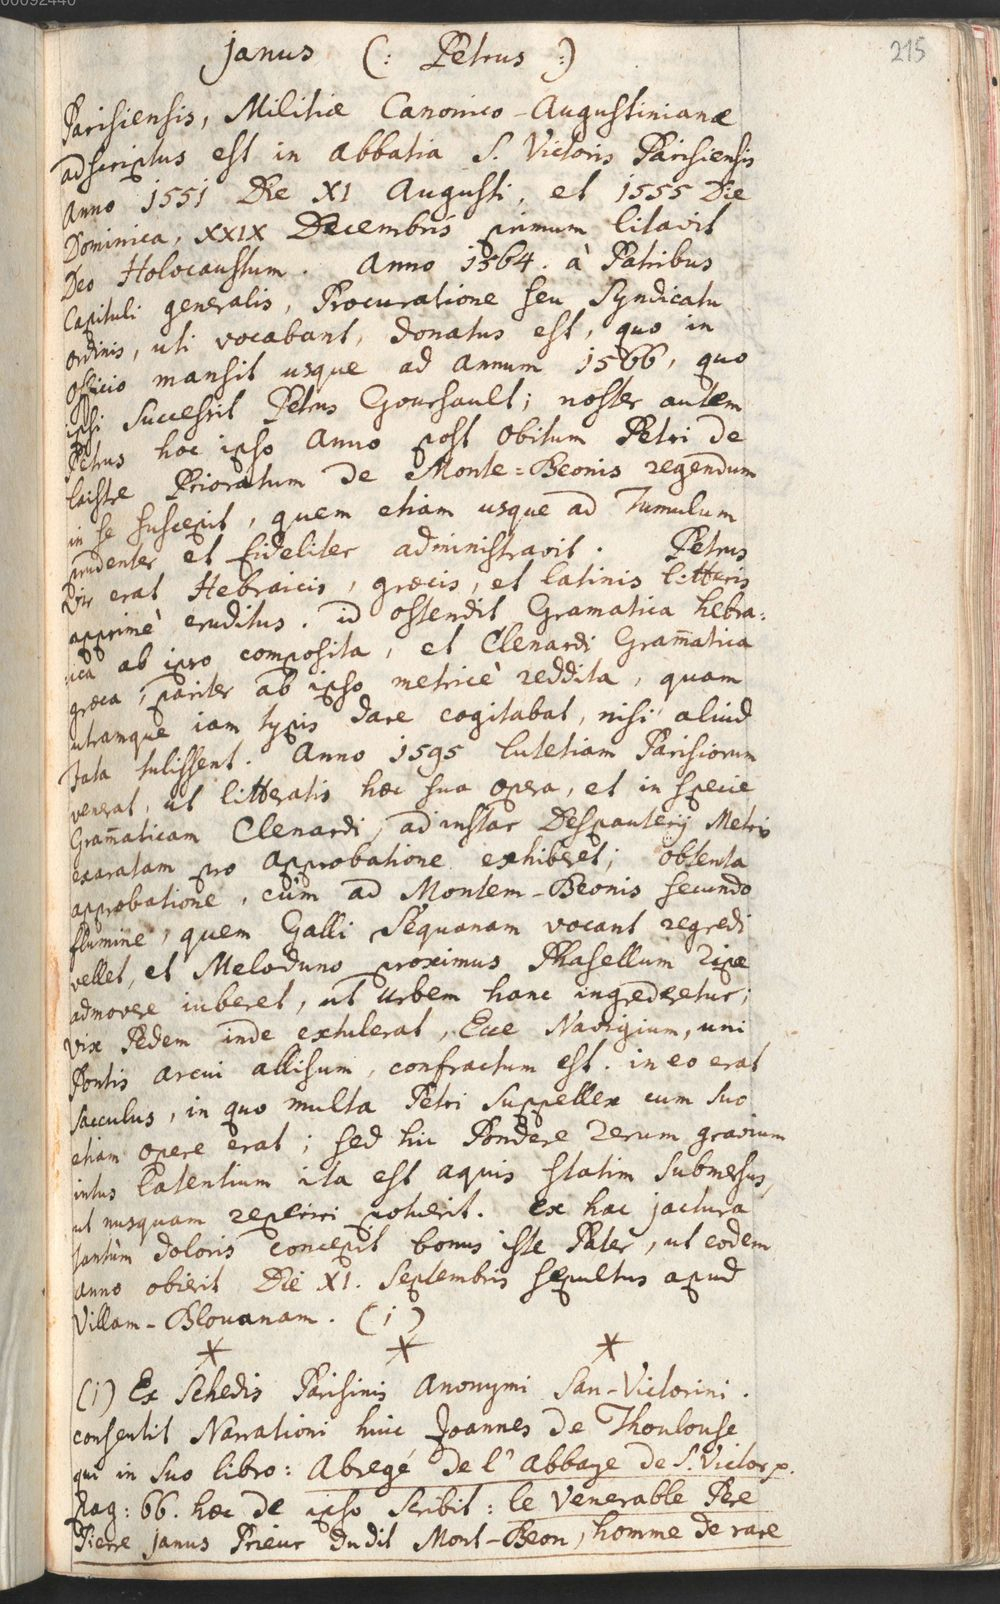 00092440
215
Janus (: Petrus :)
Parisiensis, Militiæ Canonico-Augustinianæ
adscriptus est in abbatia S. Victoris Parisiensis
Anno 1551 Die XI Augusti, et 1555 Die
Dominica, XXIX Decembris primum litavit
Deo Holocaustum. Anno 1564. à Patribus
Capituli generalis, Procuratione seu Syndicatu
ordinis, uti vocabant, donatus est, quo in
officio mansit usque ad annum 1566, quo
ipsi successit Petrus Goursault; noster autem
Petrus hoc ipso Anno post obitum Petri de
Laistre Prioratum de Monte=Beonis regendum
in se suscepit, quem etiam usque ad Tumulum
prudenter et fideliter administravit. Petrus
Vir erat Hebraicis, græcis, et latinis litteris
apprimè eruditus. id ostendit Gramatica hebra:
ica ab ipso composita, et Clenardi Gram̄atica
græca, pariter ab ipso metricè reddita, quam
utramque iam typis dare cogitabat, nisi aliud
Fata tulissent. Anno 1595 Lutetiam Parisiorum
venerat, ut litteratis hæc sua opera, et in specie
Gram̄aticam Clenardi, ad instar Despauterij Metris
exaratam pro approbatione exhiberet; obtenta
approbatione, cùm ad Montem-Beonis secundo
flumine, quem Galli Sequanam vocant regredi
vellet, et Meloduno proximus Phasellum ripæ
admovere iuberet, ut Urbem hanc ingrederetur;
vix Pedem inde extulerat, Ecce Navigium, uni
Pontis arcui allisum, confractum est. in eo erat
sacculus, in quo multa Petri suppellex cum suo
etiam opere erat; sed hic Pondere rerum gravium
intus Latentium ita est aquis statim submersus,
ut nusquam reperiri potuerit. ex hac jactura
tantùm doloris concepit bonus iste Pater, ut eodem
anno obierit Die XI. Septembris sepultus apud
Villam-Blouanam. (1)
* * *
(1) Ex Schedis Parisinis Anonymi San-Victorini.
consentit Narrationi huic Joannes de Thoulouse
qui in suo libro: Abregé de l'abbaye de S. Victor p.
pag: 66. hæc de ipso scribit: le Venerable Pere
Pierre Janus Prieur dudit Mont-Beon, homme de rare